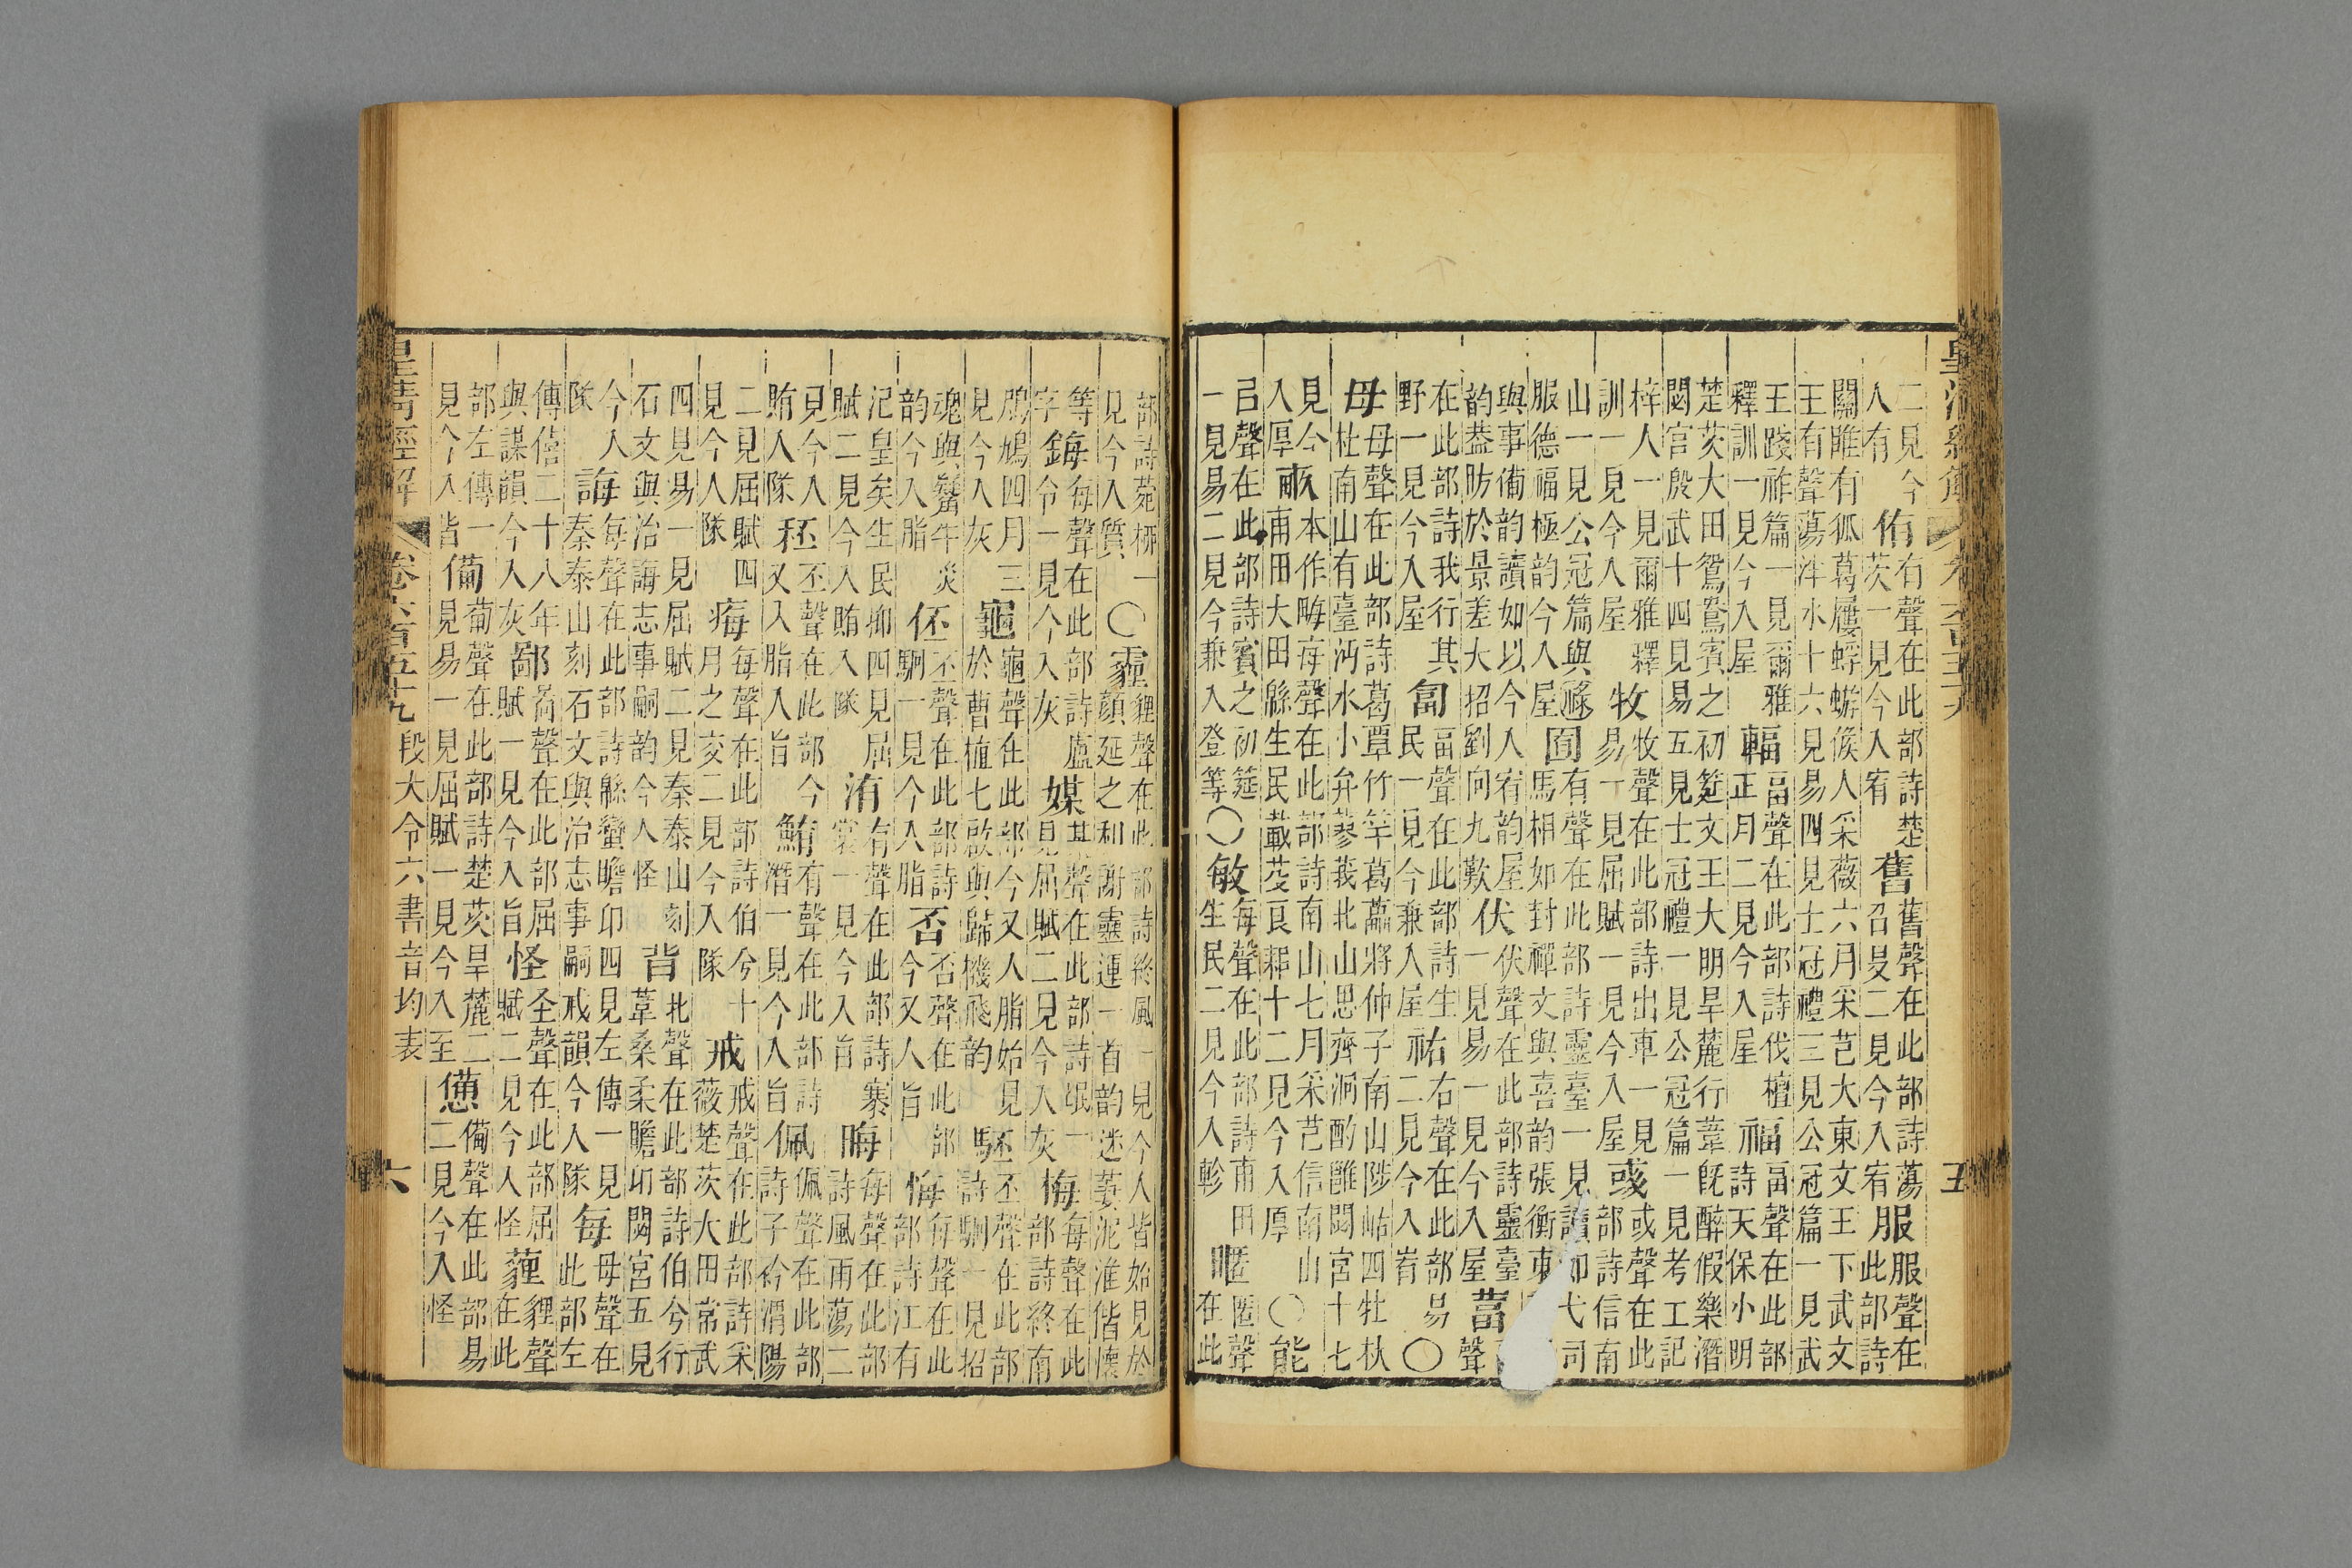 二見今人有侑有聲在此部詩楚茨一見今入宥舊舊聲在此部詩蕩召旻二見今入宥服服聲在此部詩
關雎有狐葛屨蜉蝣候人采薇六月采芑大東文王下武文王有聲蕩泮水十六見易四見士冠禮三見公冠篇一見武
王踐祚篇一見爾雅釋訓一見今入屋輻畐聲在此部詩伐檀正月二見今入屋福畐聲在此部詩天保小明
楚茨大田鴛鴦賓之初筵文王大明旱麓行葦旣醉假樂潛閟宮殷武十四見易五見士冠禮一見公冠篇一見考工記
梓人一見爾雅釋訓一見今入屋牧牧聲在此部詩出車一見易一見屈賦一見今入屋彧或聲在此部詩信南
山一見公冠篇與服德福極韵今入屋囿有聲在此部詩靈臺一見讀如弋司馬相如封禪文與喜韵張衡東
與事備韵讀如以今入宥韵屋韵葢昉於景差大招劉向九歎伏伏聲在此部詩靈臺一見易一見今入屋葍聲
在此部詩我行其野一見今入屋匐畐聲在此部詩生民一見今兼入屋祐右聲在此部易二見今入宥○
母母聲在此部詩葛覃竹竿葛藟將仲子南山陟岵四牡杕杜南山有臺沔水小弁蓼莪北山思齊泂酌雝閟宮十七
見今入厚畝本作畮每聲在此部詩南山七月采芑信南山甫田大田緜生民載芟良耜十二見今入厚○能
㠯聲在此部詩賓之初筵一見易二見今兼入登等○敏每聲在此部詩甫田生民二見今入軫暱匿聲在此
五
部詩菀桺一見今入質○霾貍聲在此部詩終風一見今入皆始見於顏延之和謝靈運一首韵迷萋泥淮偕懷
等字鋂每聲在此部詩盧令一見今入灰媒某聲在此部詩氓一見屈賦二見今入灰梅每聲在此部詩終南
鳲鳩四月三見今入灰龜龜聲在此部今又入脂始見於曹植七啟與歸機飛韵駓丕聲在此部詩駉一見招
魂與牛災韵今入脂伾丕聲在此部詩駉一見今入脂否否聲在此部今又入旨悔每聲在此部詩江有
汜皇矣生民抑四見屈賦二見今入賄入隊洧有聲在此部詩褰裳一見今入旨晦每聲在此部詩風雨蕩二
見今入賄入隊秠丕聲在此部今又入脂入旨鮪有聲在此部詩潛一見今入旨佩佩聲在此部詩子衿渭陽
二見屈賦四見今入隊痗每聲在此部詩伯兮十月之交二見今入隊戒戒聲在此部詩采薇楚茨大田常武
四見易一見屈賦二見秦泰山刻石文與治誨志事嗣韵今入怪背北聲在此部詩伯兮行葦桑柔瞻卬閟宮五見
今入隊誨每聲在此部詩緜蠻瞻卬四見左傳一見秦泰山刻石文與治志事嗣戒韻今入隊每母聲在此部左
傳僖二十八年與謀韻今入灰鄙啚聲在此部屈賦一見今入旨怪圣聲在此部屈賦二見今入怪薶貍聲在此
部左傳一見今入皆備𤰇聲在此部詩楚茨旱麓二見易一見見屈賦一見今入至憊備聲在此部易二見今入怪
皇清經解 卷六百五十九 段大令六書音均表 六